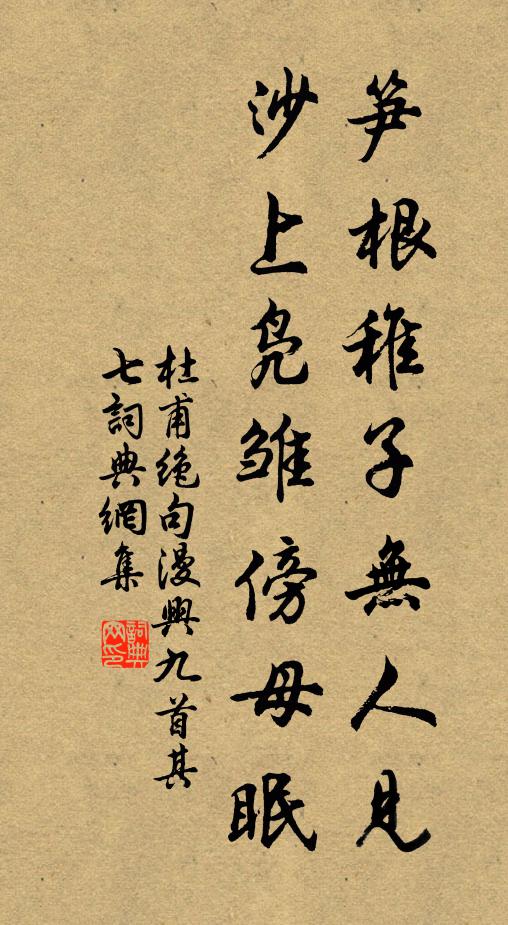 笋根稚子無人見
沙上凫雏傍母眠
杜甫絶句漫興九首其
七詞典網集
詞典
网印